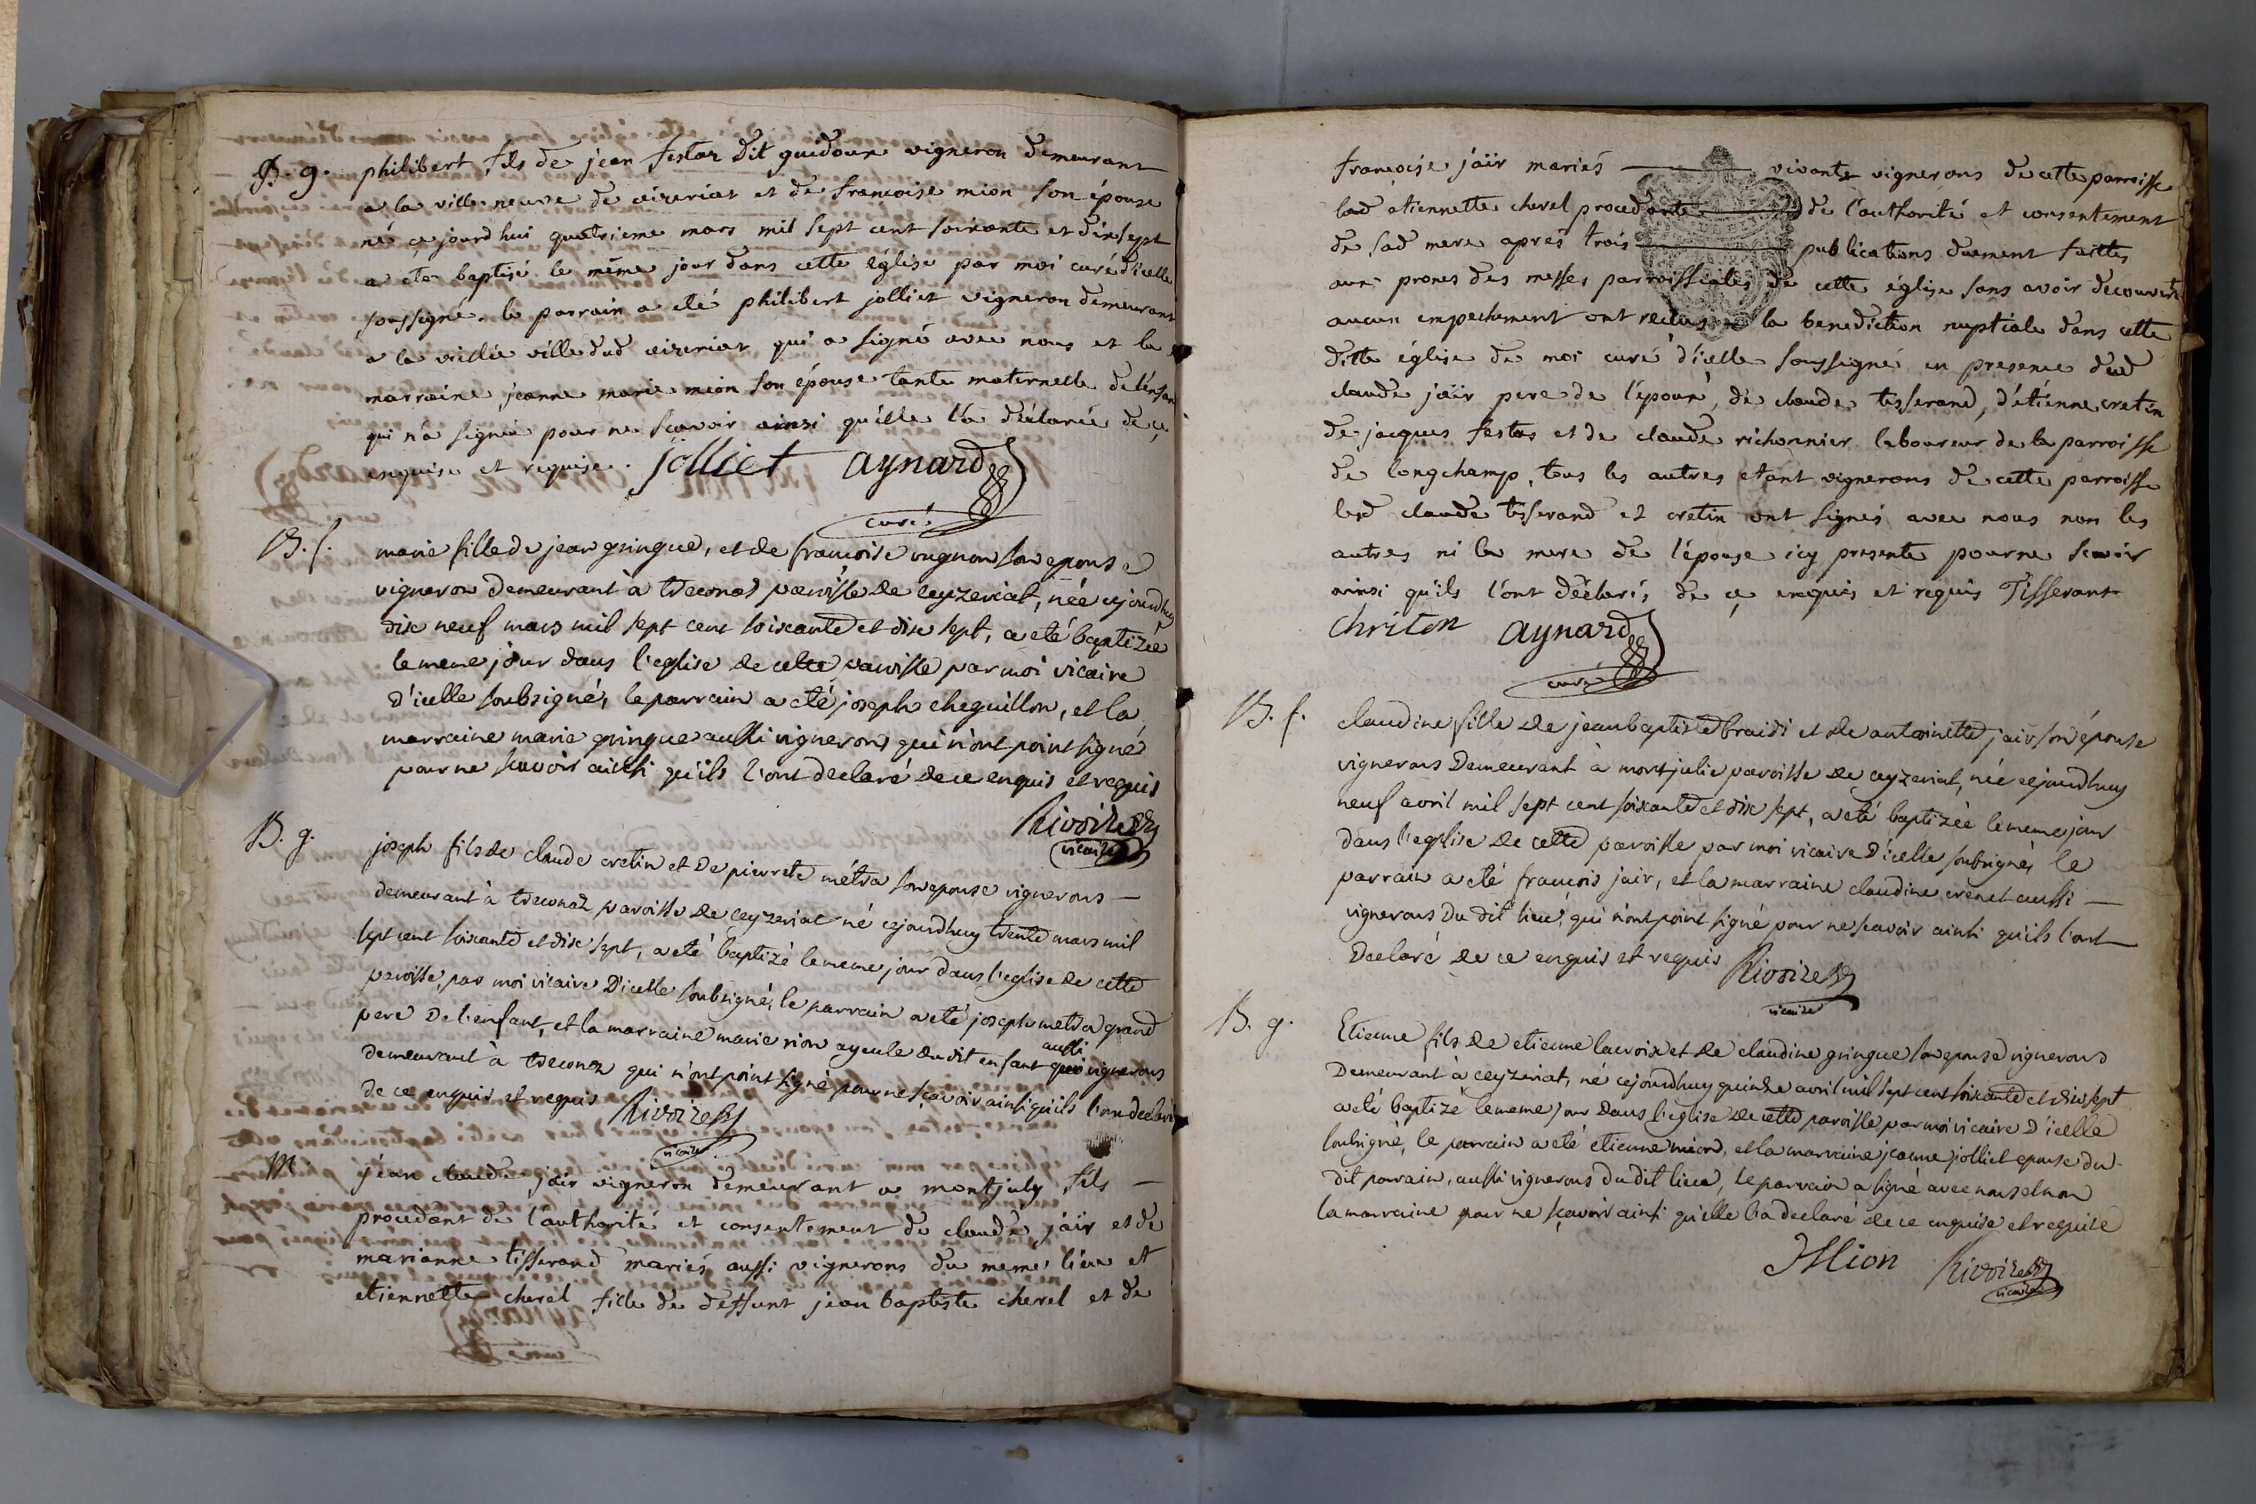 B. g. philibert fils de jean festaz dit guidour vigneron demeurant
a la ville neuve de ceizeriat et de francoise mion son épouse
né ce jourd'hui quatrieme mars mil sept cent soixante et dix sept
a ete baptisé le même jour dans cette église par moi curé d'icelle
soussigné. le parrain a eté philibert jolliet vigneron demeurant
a la vieille ville dud ceizeriat qui a signé avec nous et la
marraine jeanne marie mion son épouse tante maternelle de l'enfan
qui n'a signée pour ne scavoir ainsi qu'elle l'a déclarée de ce
enquise et requise. jolliet aynard
curé
B. f. marie fille de jean gringue, et de francoise vugnon son epouse
vigneron demeurant à treconas paroisse de ceyzeriat, née cejourdhuy
dix neuf mars mil sept cent soixante et dix sept, a eté baptizée
le meme jour dans l'eglise de cette paroisse par moi vicaire
d'icelle soubsigné, le parrain a eté joseph cheguillon, et la
marraine marie gringue aussi vignerons qui n'ont point signé
pour ne scavoir ainsi qu'ils l'ont declaré de ce enquis et requis
Rivoire
vicaire
B. g. joseph fils de claude cretin et de pierrete métra son epouse vignerons
demeurant à treconaz paroisse de ceyzeriat né cejourdhuy trente mars mil
sept cent soixante et dix sept, a eté baptizé le meme jour dans l'eglise de cette
paroisse, par moi vicaire d'icelle soubsigné, le parrain a eté joseph metra grand
pere de l'enfant, et la marraine marie nion ayeule du dit enfant aussi vignerons
demeurant à treconaz qui n'ont point signé pour ne scavoir ainsi qu'ils l'ont declaré
de ce enquis et requis Rivoire
vicaire
M jean claude jaïr vigneron demeurant a montjuly fils
procedant de l'authorité et consentement de claude jaïr et de
marianne tisserand mariés aussi vignerons du meme lieu et
etiennette chevel fille de deffunt jean baptiste chevel et de
francoise jaïr mariés vivants vignerons de cette parroisse
lad etiennette chevel procedante de l'authorité et consentement
de sad mere aprés trois publications duement faittes
aux prones des messes parroissiales de cette église sans avoir decouvert
aucun empechement ont reçus la benediction nuptiale dans cette
ditte église de moi curé d'icelle soussigné en presence dud
claude jaïr pere de l'époux, de claude tisserand, d'étienne cretin
de jacques festas et de claude richonnier laboureur de la parroisse
de longchamp, tous les autres etant vignerons de cette parroisse
lesd claude tisserand et cretin ont signés avec nous non les
autres ni la mere de l'épouse icy presente pour ne scavoir
ainsi qu'ils l'ont déclaré, de ce enquis et requis Tisserant
chriten aynard
curé
B. f. claudine fille de jean baptiste braidi et de antoinette jaïr son épouse
vignerons demeurant à montjulie paroisse de ceyzeriat, née cejourdhuy
neuf avril mil sept cent soixante et dix sept, a eté baptizée le meme jour
dans l'eglise de cette paroisse par moi vicaire d'icelle soubsigné, le
parrain a eté francois jair, et la marraine claudine crenet aussi
vignerons du dit lieu, qui n'ont point signé pour ne scavoir ainsi qu'ils l'ont
declaré de ce enquis et requis Rivoire
vicaire
B. g. Etienne fils de etienne lacroix et de claudine gringue son epouse vignerons
demeurant à ceyzeriat, né cejourdhuy quinze avril mil sept cent soixante et dix sept
a eté baptizé le meme jour dans l'eglise de cette paroisse par moi vicaire d'icelle
soubsigné, le parrain a eté etienne mion, et la marraine jeanne jolliet epouse du
dit parrain, aussi vignerons du dit lieu, le parrain a signé avec nous et non
la marraine pour ne scavoir ainsi qu'elle l'a declaré de ce enquise et requise
Mion Rivoire
vicaire